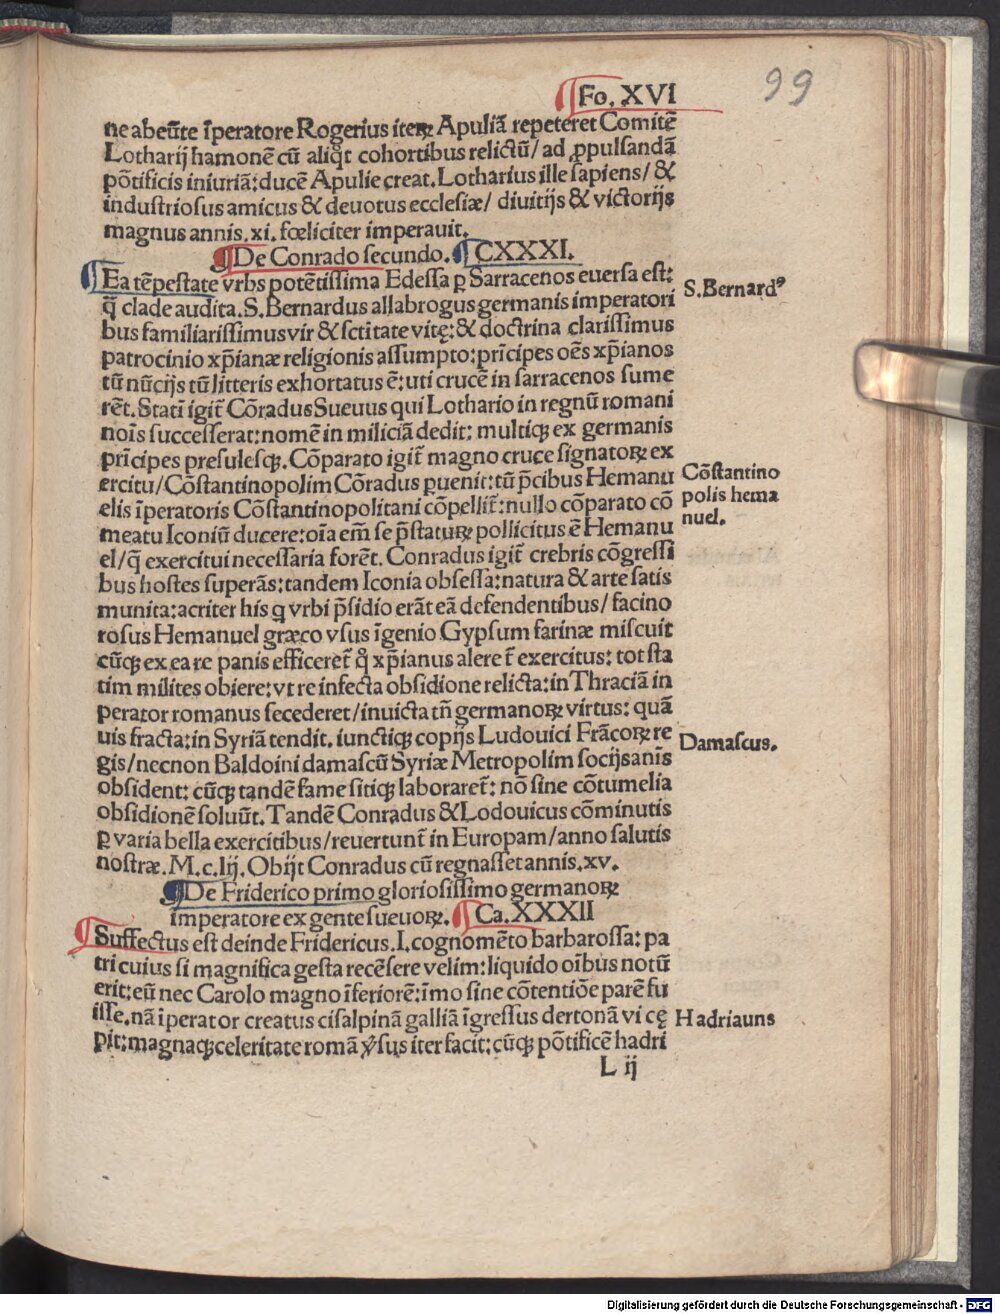 Fo. XVI
99
ne abeūte īperatore Rogerius iteꝝ Apuliā repeteret Comitē
Lotharij hamonē cū aliq̄t cohortibus relictū/ ad ꝓpulsandā
pōtificis iniuriā: ducē Apulie creat. Lotharius ille sapiens/ &
industriosus amicus & deuotus ecclesiæ/ diuitijs & victorijs
magnus annis. xi. fœliciter imperauit.
¶De Conrado secundo. ¶CXXXI.
¶Ea tēpestate vrbs potētissima Edessa ꝑ Sarracenos euersa est:
q̄ clade audita. S. Bernardus allabrogus germanis imperatori
bus familiarissimus vir & sctitate vitę: & doctrina clarissimus
patrocinio xp̄ianæ religionis assumpto: prīcipes oēs xp̄ianos
tū nūcijs tū litteris exhortatus ē: uti crucē in sarracenos sume
rēt. Stati igit̄ Cōradus Sueuus qui Lothario in regnū romani
nois successerat: nomē in miliciā dedit: multiqꝫ ex germanis
prīcipes presulesqꝫ. Cōparato igit̄ magno cruce signatoꝝ ex
ercitu/ Cōstantinopolim Cōradus ꝑuenit: tū p̄cibus Hemanu
elis īperatoris Cōstantinopolitani cōpellit̄: nullo cōparato cō
meatu Iconiū ducere: oīa em̄ se p̄staturꝝ pollicitus ē Hemanu
el/ q̄ exercitui necessaria forēt. Conradus igit̄ crebris cōgressi
bus hostes superās: tandem Iconia obsessa: natura & arte satis
munita: acriter his q vrbi p̄sidio erāt eā defendentibus/ facino
rosus Hemanuel græco vsus īgenio Gypsum farinæ miscuit
cūqꝫ ex ea re panis efficeret̄ q̄ xp̄ianus aleret̄ exercitus: tot sta
tim milites obiere: vt re infecta obsidione relicta: in Thraciā in
perator romanus secederet/ inuicta tn̄ germanoꝝ virtus: quā
uis fracta: in Syriā tendit. iunctiqꝫ copijs Ludouici Frācoꝝ re
gis/ necnon Baldoini damascū Syriæ Metropolim socijs anis
obsident: cūqꝫ tandē fame sitiqꝫ laboraret̄: nō sine cōtumelia
obsidionē soluūt. Tandē Conradus & Lodouicus cōminutis
ꝑ varia bella exercitibus/ reuertunt̄ in Europam/ anno salutis
nostræ. M. c. lij. Obijt Conradus cū regnasset annis. xv.
¶De Friderico primo gloriosissimo germanoꝝ
imperatore ex gente sueuoꝝ. ¶Ca. XXXII
¶Suffectus est deinde Fridericus. I. cognomēto barbarossa: pa
tri cuius si magnifica gesta recēsere velim: liquido oībus notū
erit: eū nec Carolo magno īferiorē: īmo sine cōtentiōe parē fu
isse. nā īperator creatus cisalpinā galliā īgressus dertonā vi cę
pit: magnaqꝫ celeritate romā v̄sus iter facit: cūqꝫ pōtificē hadri
L ij
S. Bernardꝰ
Cōstantino
polis hema
nuel.
Damascus.
Hadriauns
Digitalisierung gefördert durch die Deutsche Forschungsgemeinschaft - DFG